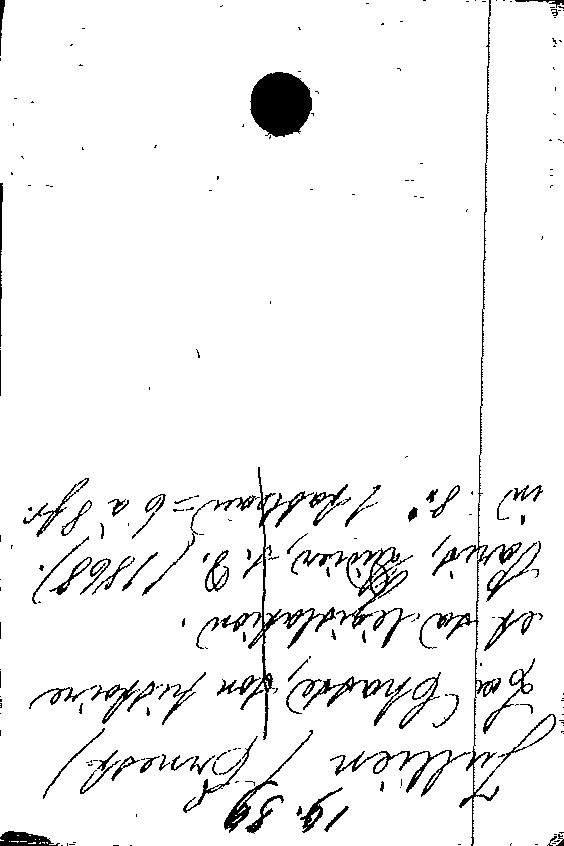 19.89
Jullien (Ernest)
La Chasse, son histoire
et sa législation.
Paris, Didier, s. D. (1868).
in-8° 1 tableau = 6 à 8 fr.